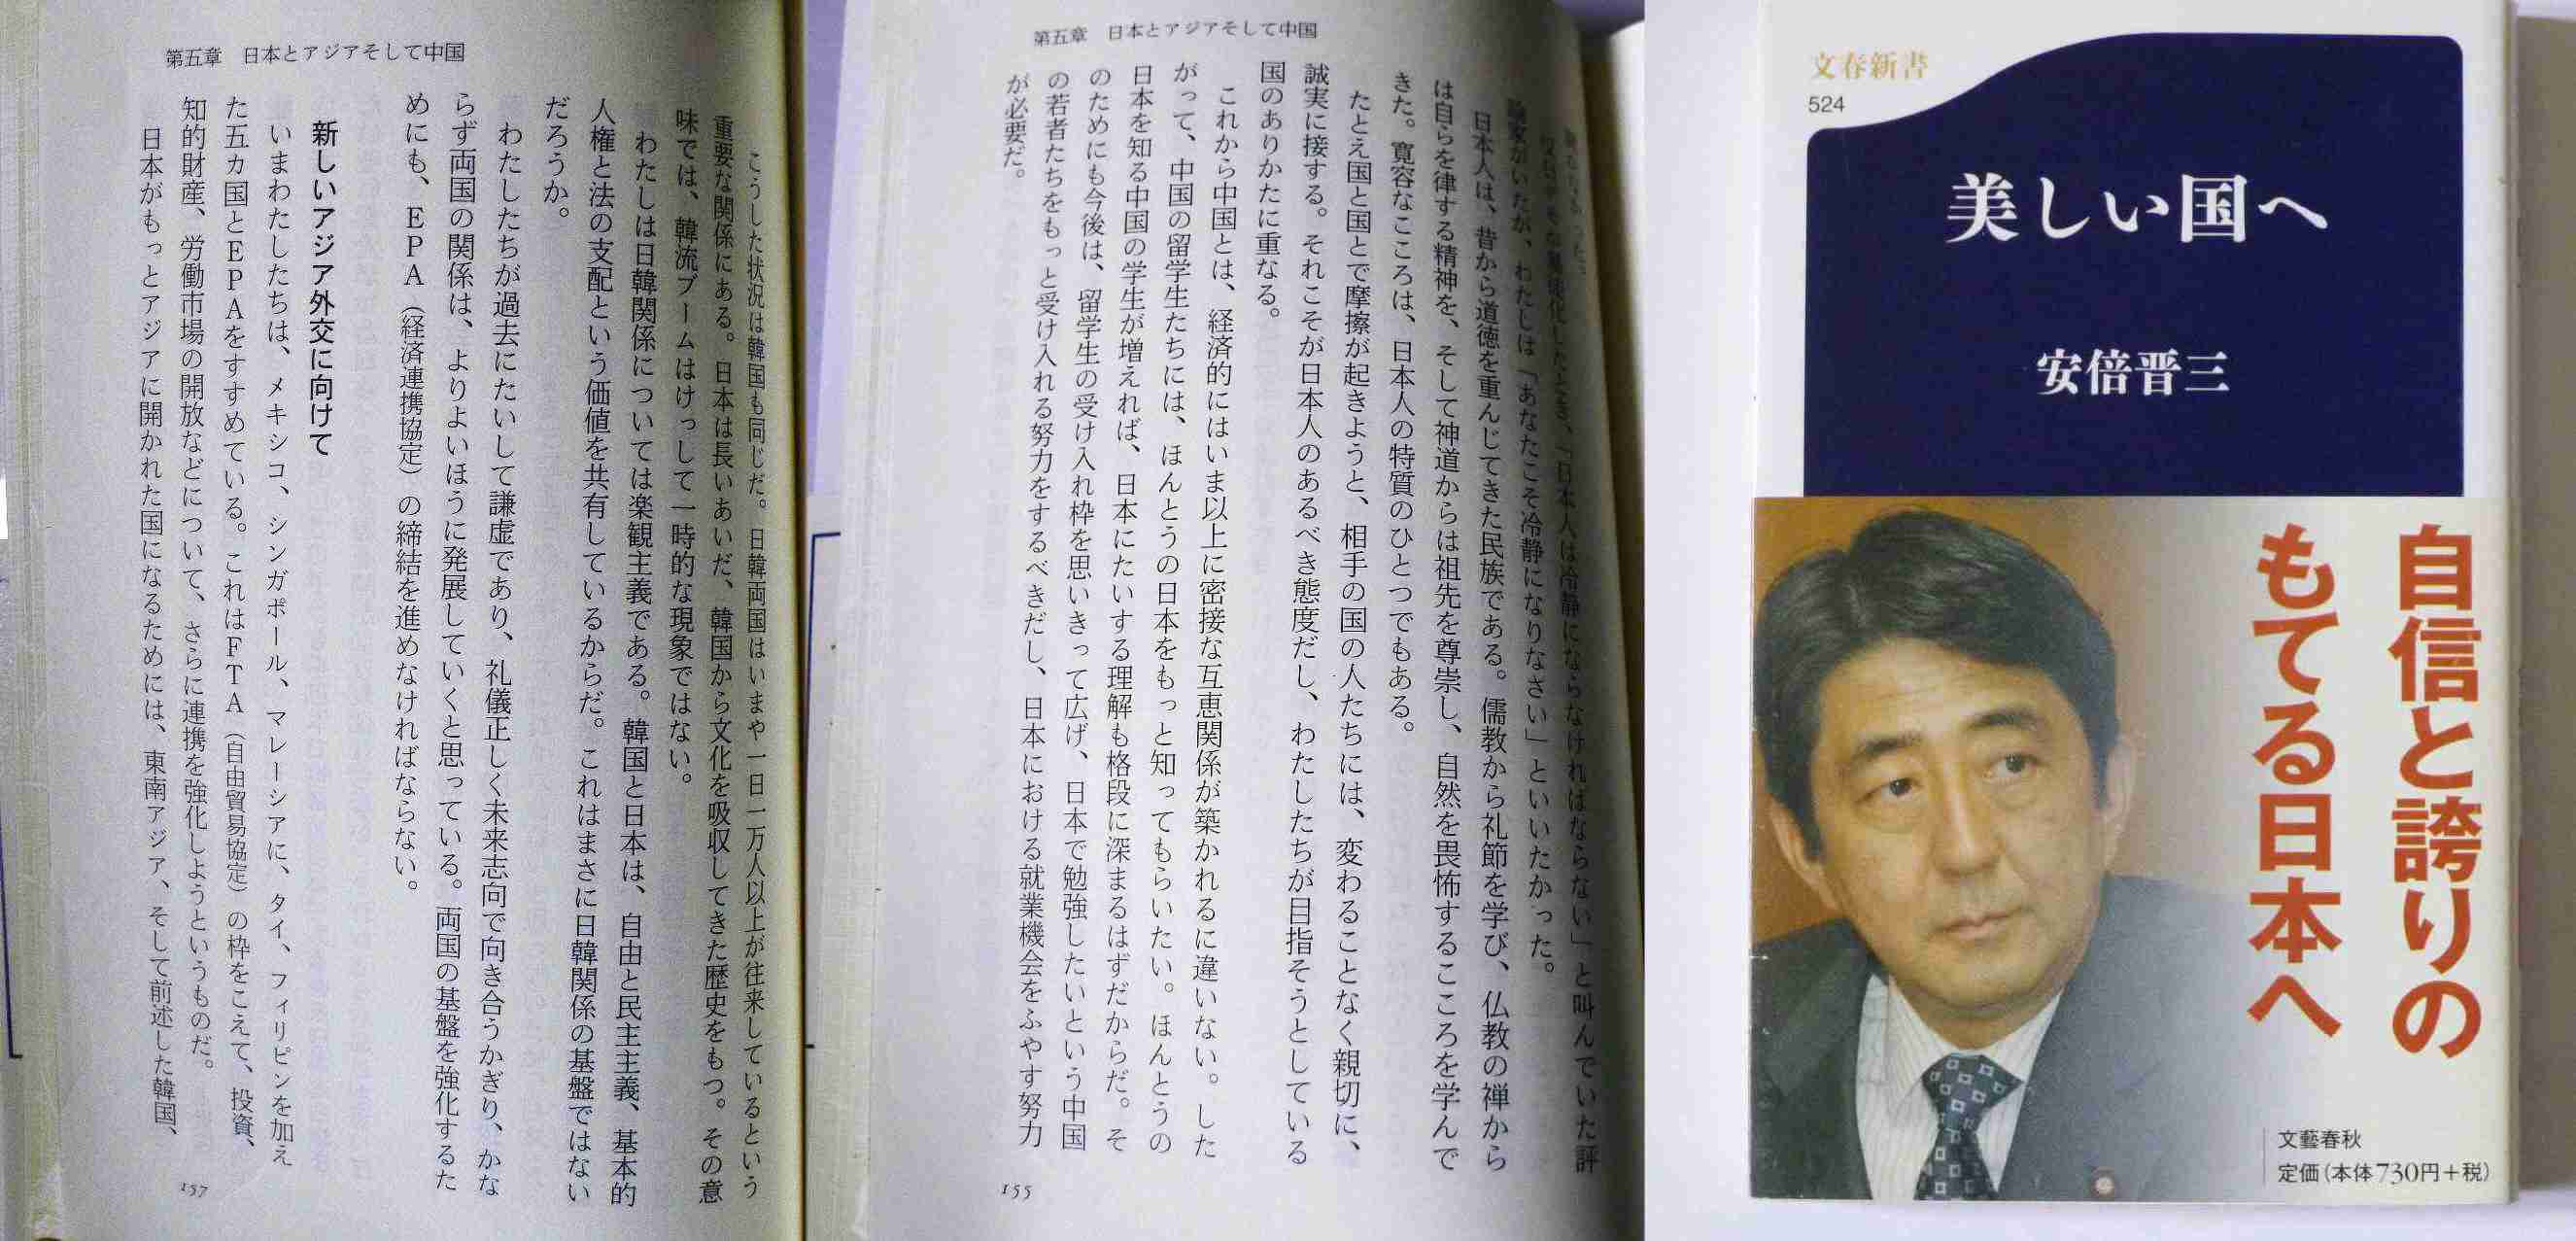 第五章 日本とアジアそして中国
こうした状況は韓国も同じだ。日韓両国はいまや一日一万人以上が往来しているという
重要な関係にある。日本は長いあいだ、韓国から文化を吸収してきた歴史をもつ。その意
味では、韓流ブームはけっして一時的な現象ではない。
わたしは日韓関係については楽観主義である。韓国と日本は、自由と民主主義、基本的
人権と法の支配という価値を共有しているからだ。これはまさに日韓関係の基盤ではない
だろうか。
わたしたちが過去にたいして謙虚であり、礼儀正しく未来志向で向き合うかぎり、かな
らず両国の関係は、よりよいほうに発展していくと思っている。両国の基盤を強化するた
めにも、EPA（経済連携協定）の締結を進めなければならない。
新しいアジア外交に向けて
いまわたしたちは、メキシコ、シンガポール、マレーシアに、タイ、フィリピンを加え
た五カ国とEPAをすすめている。これはFTA（自由貿易協定）の枠をこえて、投資、
知的財産、労働市場の開放などについて、さらに連携を強化しようというものだ。
日本がもっとアジアに開かれた国になるためには、東南アジア、そして前述した韓国、
157
第五章 日本とアジアそして中国
「日本人は冷静にならなければならない」と叫んでいた評
論家がいたが、わたしは「あなたこそ冷静になりなさい」といいたかった。
日本人は、昔から道徳を重んじてきた民族である。儒教から礼節を学び、仏教の禅から
は自らを律する精神を、そして神道からは祖先を尊崇し、自然を畏怖するこころを学んで
きた。寛容なこころは、日本人の特質のひとつでもある。
たとえ国と国とで摩擦が起きようと、相手の国の人たちには、変わることなく親切に、
誠実に接する。それこそが日本人のあるべき態度だし、わたしたちが目指そうとしている
国のありかたに重なる。
これから中国とは、経済的にはいま以上に密接な互恵関係が築かれるに違いない。した
がって、中国の留学生たちには、ほんとうの日本をもっと知ってもらいたい。ほんとうの
日本を知る中国の学生が増えれば、日本にたいする理解も格段に深まるはずだからだ。そ
のためにも今後は、留学生の受け入れ枠を思いきって広げ、日本で勉強したいという中国
の若者たちをもっと受け入れる努力をするべきだし、日本における就業機会をふやす努力
が必要だ。
155
文春新書
524
美しい国へ
安倍晋三
自信と誇りの
もてる日本へ
文藝春秋
定価（本体730円＋税）